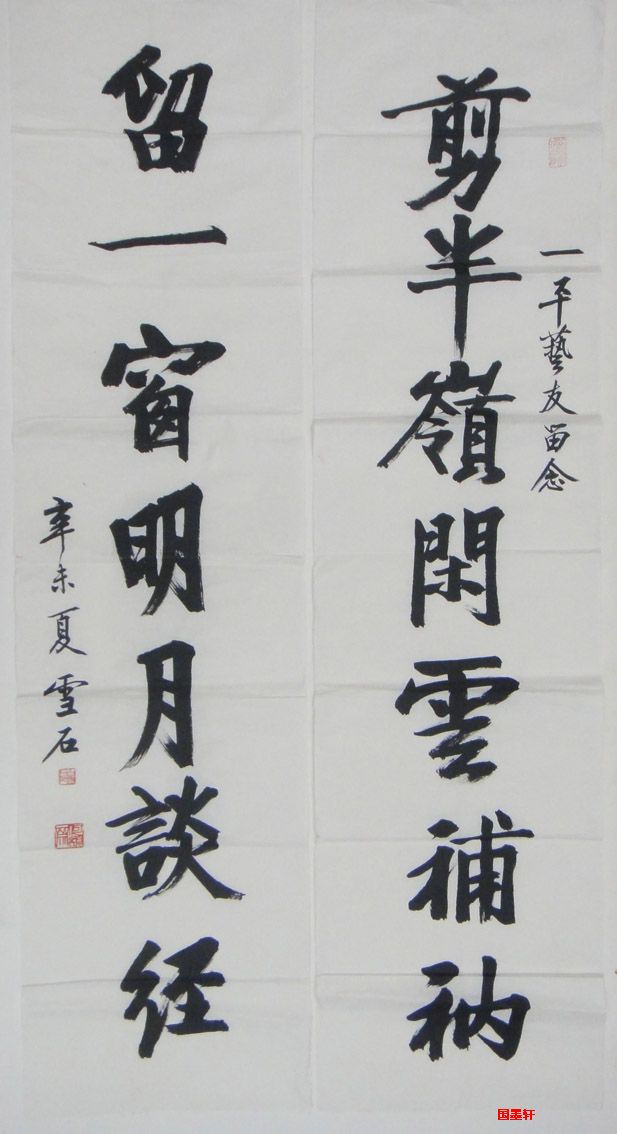 一平藝友留念
剪半嶺閑雲補衲
留一窗明月談经
辛未夏雪石
国墨轩